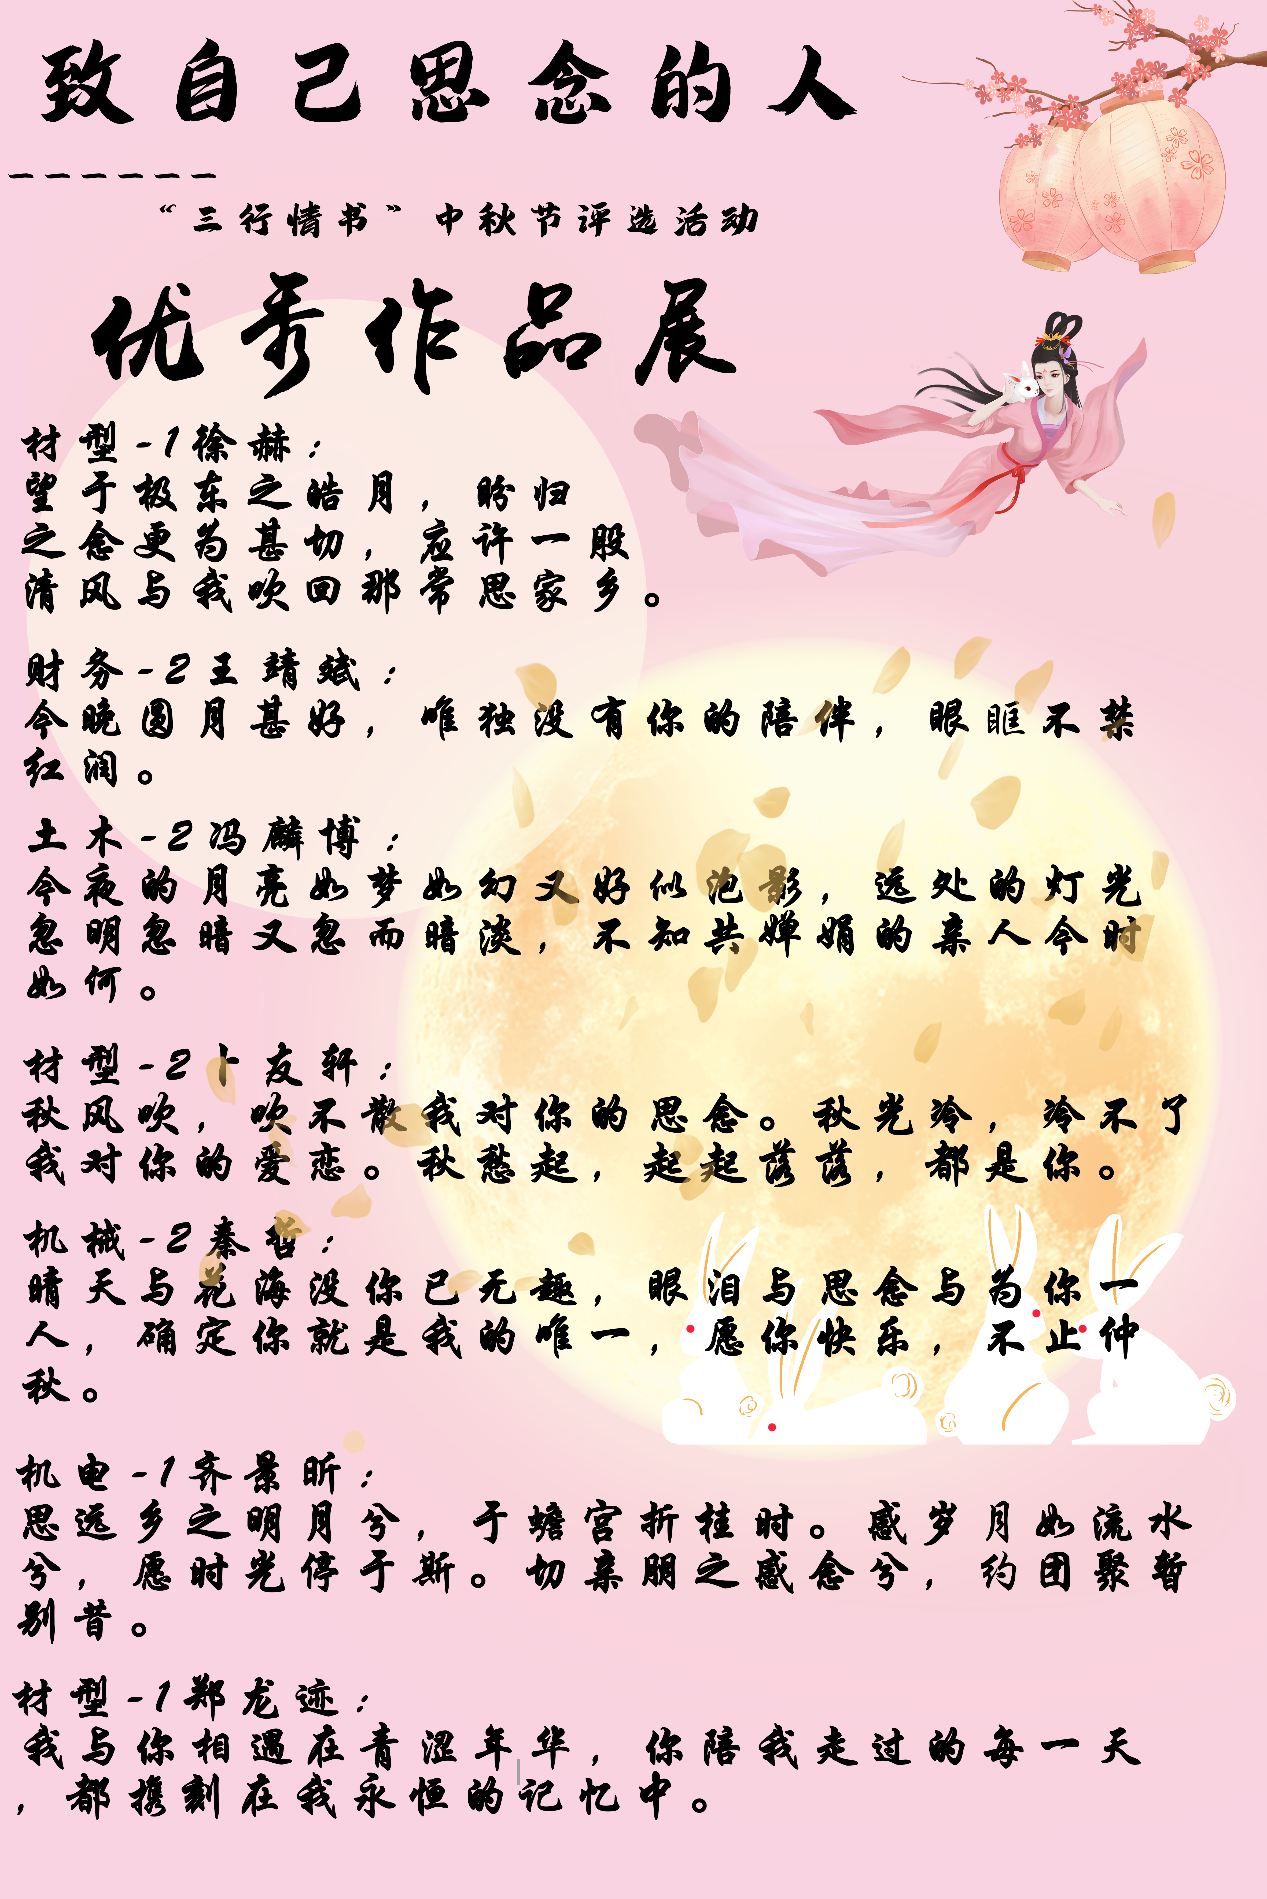 致自己思念的人
——————
“三行情书”中秋节评选活动
优秀作品展
材型-1徐赫：
望于极东之皓月，盼归
之念更为甚切，应许一股
清风与我吹回那常思家乡。
财务-2王靖斌：
今晚圆月甚好，唯独没有你的陪伴，眼眶不禁
红润。
土木-2冯麟博：
今夜的月亮如梦如幻又好似泡影，远处的灯光
忽明忽暗又忽而暗淡，不知共婵娟的亲人今时
如何。
材型-2卜友轩：
秋风吹，吹不散我对你的思念。秋光冷，冷不了
我对你的爱恋。秋愁起，起起落落，都是你。
机械-2秦哲：
晴天与花海没你已无趣，眼泪与思念与为你一
人，确定你就是我的唯一，愿你快乐，不止仲
秋。
机电-1齐景昕：
思远乡之明月兮，于蟾宫折桂时。感岁月如流水
兮，愿时光停于斯。切亲朋之感念兮，约团聚暂
别昔。
材型-1郑龙迹：
我与你相遇在青涩年华，你陪我走过的每一天
，都携刻在我永恒的记忆中。